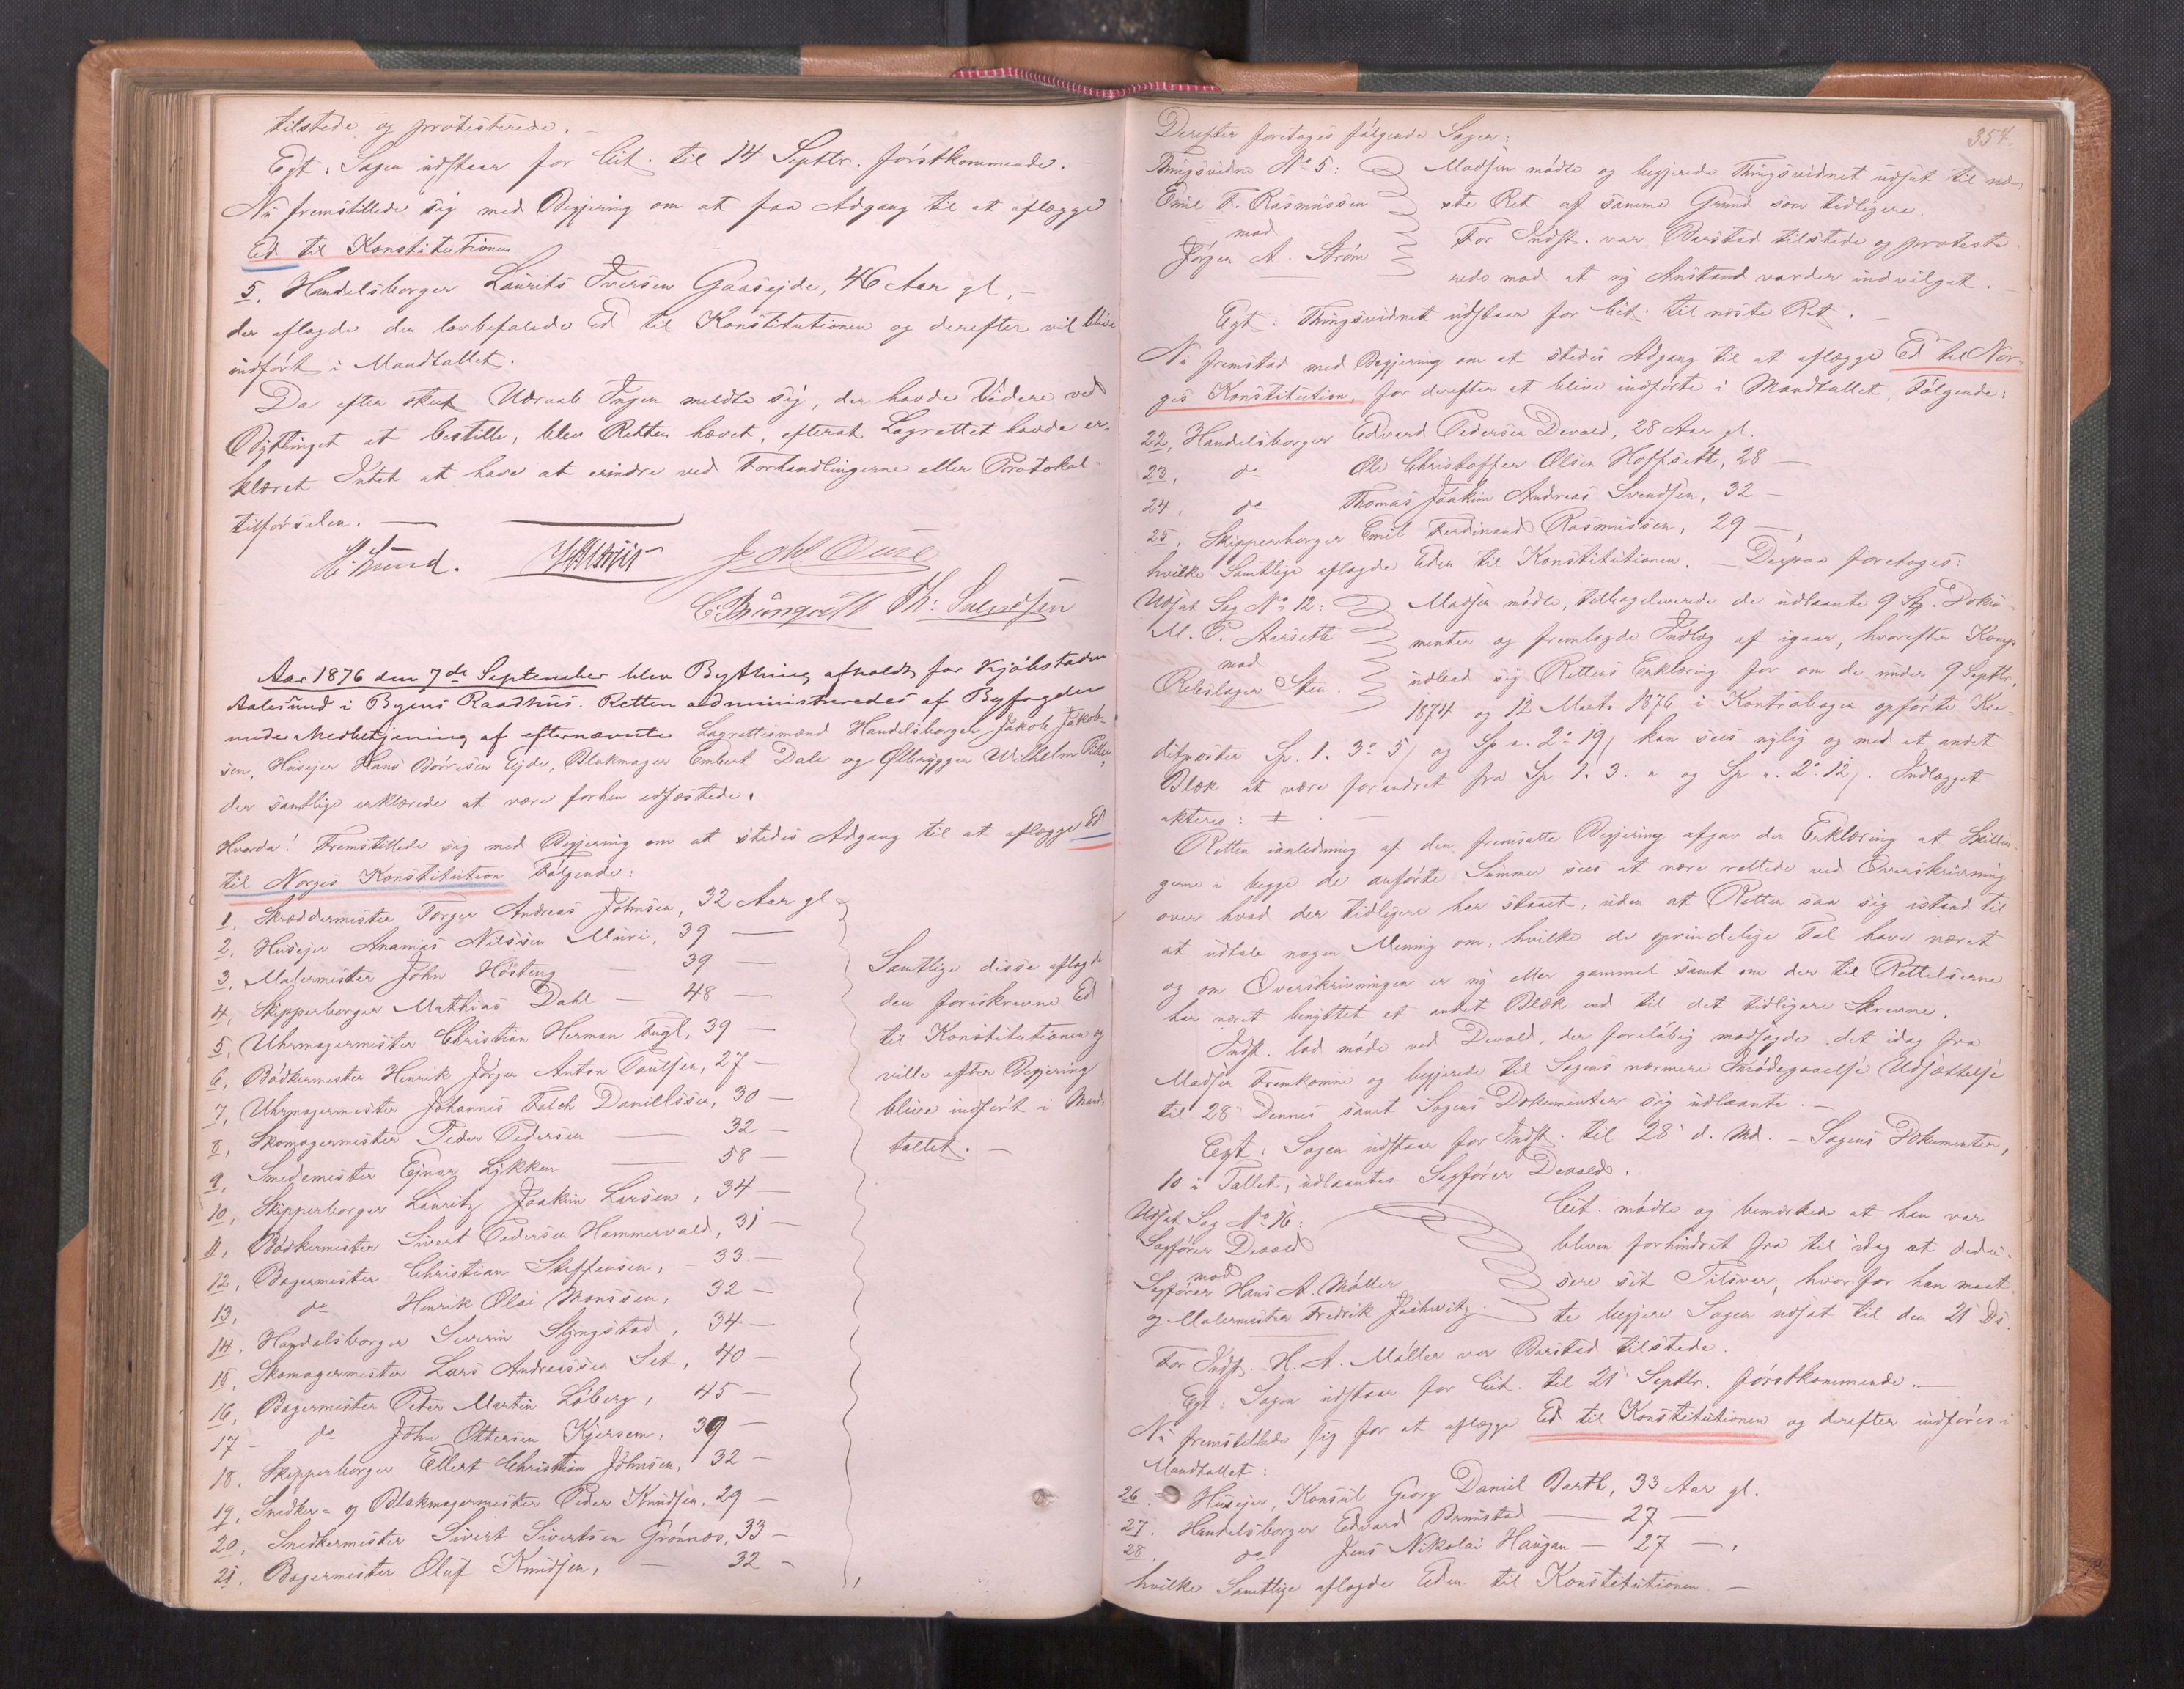 tilstede og protesterede. –
Egt: Sagen udstaar for Cit. til 14 Septbr. førstkommende.
Nu fremstillede sig med Begjering om at faa Adgang til at aflægge
Ed til Konstitutionen
5, Handelsborger Laurits Iversen Gaasejde, 46 Aar gl. –
der aflagde den lovbefalede Ed til Konstitutionen og derefter vil blive
indført i Mandtallet.
Da efter skeet Udraab Ingen meldte sig, der havde Videre ved
Bythinget at bestille, blev Retten hævet, efterat Lagrettet havde er-
klæret Intet at have at erindre ved Forhandlingerne eller Protokol-
tilførselen. —
Aar 1876 den 7de September blev Bything afholdt for Kjøbstaden
Aalesund i Byens Raadhus. Retten administreredes af Byfogden
under Medbetjening af efternævnte Lagrettesmænd Handelsborger Jakob Jakob-
sen, Husejer Hans Børresen Ejde, Blokmager Embert Dale og Ølbrygger Wilhelm
der samtlige erklærede at være forhen edfæstede.
Hvorda! Fremstillede sig med Begjering om at stedes Adgang til at aflægge Ed
til Norges Konstitution Følgende:
1, Skræddermester Torger Andreas Johnsen, 32 Aar gl
2, Husejer Ananias Nilssen Muri, 39 —
3, Malermester John Høsteng — 39 —
4, Skipperborger Matthias Dahl — 48 —
5, Uhrmagermester Christian Herman Fugl, 39 —
6, Bødkermester Henrik Jørgen Anton Paulsen, 27 —
7, Uhrmagermester Johannes Falch Daniellssen, 30 —
8, Skomagermester Peder Pedersen — 32 —
9, Smedemester Ejnar Lykken — 58 —
10, Skipperborger Lauritz Joakim Larsen, 34 —
11, Bødkermester Sivert Pedersen Hammervold, 31 —
12, Bagermester Christian Steffensen, – 33 —
13, do Henrik Olai Monssen, 32 —
14, Handelsborger Severin Slyngstad, 34 —
15, Skomagermester Lars Andreassen Set, 40 —
16, Bagermester Peter Martin Løberg, 45 —
17 – do John Ottersen Kjersem, 39 —
18, Skipperborger Ellert Christian Johnsen, 32 —
19, Snedker- og Blokmagermester Peder Knudsen, 29 —
20, Snedkermester Sivert Sivertsen Grønnæs, 33 —
21, Bagermester Oluf Knudsen, — 32 —
Samtlige disse aflagde
den foreskrevne Ed
til Konstitutionen og
ville efter Begjering
blive indført i Mand-
tallet. —
354.
Derefter foretages følgende Sager:
Thingsvidne No 5: Madsen mødte og begjerede Thingsvidnet udsat til næ-
Emil F. Rasmussen ste Ret af samme Grund som tidligere.
mod For Indst. var Barstad tilstede og proteste-
Jørgen A. Strøm rede mod at ny Anstand vorder indvilget. –
Egt: Thingsvidnet udstaar for Cit. til næste Ret. –
Nu fremstod med Begjering om at stedes Adgang til at aflægge Ed til Nor-
ges Konstitution, for derefter at blive indførte i Mandtallet, Følgende:
22, Handelsborger Edvard Pedersen Devold, 28 Aar gl.
23, do Ole Christoffer Olsen Hoffseth, 28 —
24, do Thomas Joakim Andreas Svendsen, 32 —
25, Skipperborger Emil Ferdinand Rasmussen, 29 —
hvilke Samtlige aflagde Eden til Konstitutionen. – Derpaa foretages:
Udsat Sag No 12: Madsen mødte, tilbageleverede de udlaante 9 St. Doku-
M. P. Aarseth menter og fremlagde Indlæg af igaar, hvorefter Komp
mod udbad sig Rettens Erklæring for om de under 9 Septbr.
Rebslager Sten. 1874 og 12 Marts 1876 i Kontrabogen opførte Kre-
ditposter Sp. 1. 3. 5 og Sp „. 2. 19 kan sees nylig og med et andet
Blæk at være forandret fra Sp 1. 3. „ og Sp „. 2. 12. Indlægget
akteres: ±
Retten ianledning af den fremsatte Begjering afgav den Erklæring at Skillin-
gerne i begge de anførte Summer sees at være rettede ved Overskrivning
over hvad der tidligere har staaet, uden at Retten saa sig istand til
at udtale nogen Mening om, hvilke de oprindelige Tal have været
og om Overskrivningen er ny eller gammel samt om der til Rettelserne
har været benyttet et andet Blæk end til det tidligere Skrevne.
Indst. lod møde ved Devold, der foreløbig modsagde det idag fra
Madsen Fremkomne og begjerede til Sagens nærmere Imødegaaelse Udsættelse
til 28 Dennes samt Sagens Dokumenter sig udlaante. –
Egt: Sagen udstaar for Indst. til 28 d. Md. – Sagens Dokumenter,
10 i Tallet, udlaantes Sagfører Devold.
Udsat Sag No 16: Cit. mødte og bemærkede at han var
Sagfører Devold bleven forhindret fra til idag at dedu-
mod sere sit Tilsvar, hvorfor han maat-
Sagfører Hans A. Møller te begjere Sagen udsat til den 21 Ds.
og Malermester Fredrik Jachwitz.
For Indst. H. A. Møller var Barstad tilstede.
Egt: Sagen udstaar for Cit. til 21 Septbr. førstkommende. —
Nu fremstillede sig for at aflægge Ed til Konstitutionen og derefter indføres i
Mandtallet:
26. Husejer, Konsul Georg Daniel Barth, 33 Aar gl.
27. Handelsborger Edvard Brunstad — 27 —
28. do Jens Nikolai Haugan — 27 —.
hvilke Samtlige aflagde Eden til Konstitutionen —